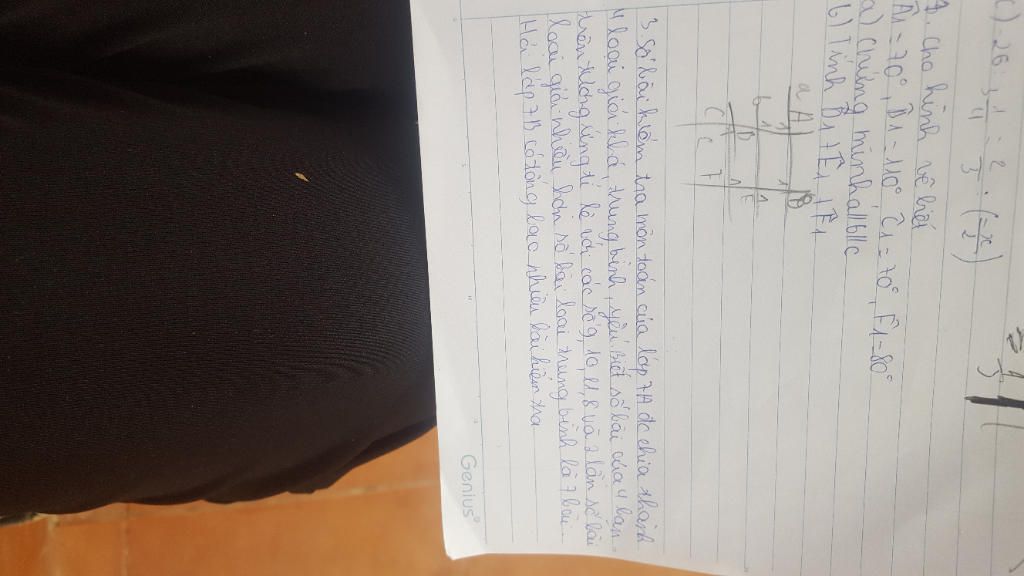 c) -26 : 1/4 = 2/3 : (-x/2)
1. cho hình vẽ biết
Â1 = 70°, B̂1 = 110° Ĉ1 = 70°, F̂1 = 80°
a) chứng minh a//b//c
b) Tính D̂1, Ê1, F̂1
a A B
b D E
c C F
3 Số bài kiểm tra môn toán của lớp 7A đc chia thành
4 loại giỏi khá, trung bình, yếu biết số bài của 4 loại
trên tương ứng tỉ lệ với các số 9, 10, 11, 8 và 2 lần số bài
loại giỏi nhiều hơn số bài loại trung bình là 7 bài
Hỏi lớp 7B có tổng bao nhiêu bài kiểm tra
Genius